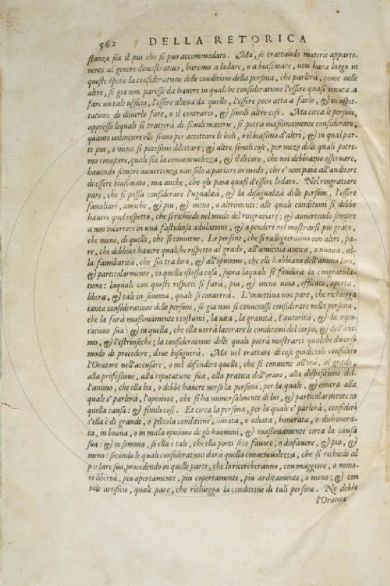 562 DELLA RETORICA
stanza sia il piu che si può accommodato. Ma, se trattando materie apparte-
nenti al genere dimostrativo, haremo a lodare, o a biasimare, non hara luogo in
questa spetie la consideratione delle conditioni della persona, che parlerà, come nelle
altre, se già non paresse da havere in qualche consideratione l'essere quasi tenuta a
fare un tale officio, l'essere aliena da quello, l'essere poco atta a farlo, & in aspet-
tatione di doverlo fare, o il contrario, & simili altre cose. Ma circa le persone,
appresso lequali si tratterà di simili materie, si potrà massimamente considerare,
quanto volentieri elle siano per accettare le lodi, o i biasimi d'altri, & in quai par-
te piu, o meno si potessino dilettare; & altre simili cose, per mezo delle quali potre-
mo vedere, quale sia la convenevolezza, & il decoro, che noi debbiamo osservare,
havendo sempre avvertenza non solo a parlare in modo, che e' non paia all'auditore
di essere biasimato, ma anche, che gli paia quasi d'essere lodato. Nel ringratiare
pare, che si possa considerare l'ugualità, & la disugualità delle persone, l'essere
familiari, amiche, & piu, & meno, o altrimenti; alle quali conditioni si debbe
havere quel rispetto, che si richiede nel modo del ringratiare; & avvertendo sempre
a non incorrere in una fastidiosa adulatione, & a pendere nel mostrarsi piu grato,
che meno, di quello, che si conviene. Le persone, che si rallegreranno con altre, pa-
re, che debbino havere qualche rispetto al grado, all'amicitia antica, o nuova, al-
la familiarità, che sia tra loro, & all'opinione, che elle habbiano dell'animo loro,
& particolarmente, in quella istessa cosa, sopra laquale si fonderà la congratula-
tione: laquale con questi rispetti si farà, piu, & meno una, efficace, aperta,
libera, & tale in somma, quale si converrà. L'invettiva non pare, che richiegga
tanta consideratione delle persone, se già non si convenisse considerare nella persona,
che la farà massimamente i costumi, la vita, la gravità, l'autorità, & la ripu-
tatione sua: & in quella, che ella vorrà lacerare le conditioni del corpo, & dell'ani-
mo, & l'estrinseche; la consideratione delle quali potrà mostrarci qualche diverso
modo di procedere, dove bisognerà. Ma nel trattare di cose giuditiali consideri
l'Oratore nell'accusare, o nel difendere quello, che si conviene all'età, al grado,
alla professione, alla riputatione sua, alla pratica dell'orare, alla dispositione del-
l'animo, che ella ha, o debbe havere verso la persona; per la quale, & contra alla
quale e' parlerà, l'opinione, che si ha universalmente di lui, & particolarmente in
quella causa: & simili cose. Et circa la persona, per la quale e' parlerà, consideri
s'ella è di grande, o piccola conditione, amata, o odiata, honorata, o dishonora-
ta, in buona, o in mala opinione de gli huomini, & massimamente circa la causa
sua: & in somma, se ella è tale, che ella porti seco favore, o disfavore, & piu, &
meno: secondo le quali considerationi dara quella convenevolezza, che si richiede al
parlare suo, procedendo in quelle parti, che lo ricercheranno, con maggiore, o mino-
re libertà, piu apertamente, piu copertamente, piu arditamente, o meno; & con
tale artificio, quale pare, che richiegga la conditione di tali persone. Ne debbe
l'Oratore